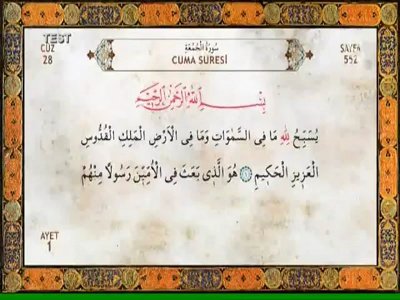 TEST
CÜZ
28
سُورَةُ الْجُمُعَةِ
CUMA SURESİ
SAYFA
552
بِسْمِ اللّٰهِ الرَّحْمٰنِ الرَّحِيمِ
يُسَبِّحُ لِلّٰهِ مَا فِى السَّمٰوَاتِ وَمَا فِى الْاَرْضِ الْمَلِكِ الْقُدُّوسِ
الْعَزِيزِ الْحَكِيمِ ﴿١﴾ هُوَ الَّذِى بَعَثَ فِى الْاُمِّيّنَ رَسُولًا مِنْهُمْ
AYET
1